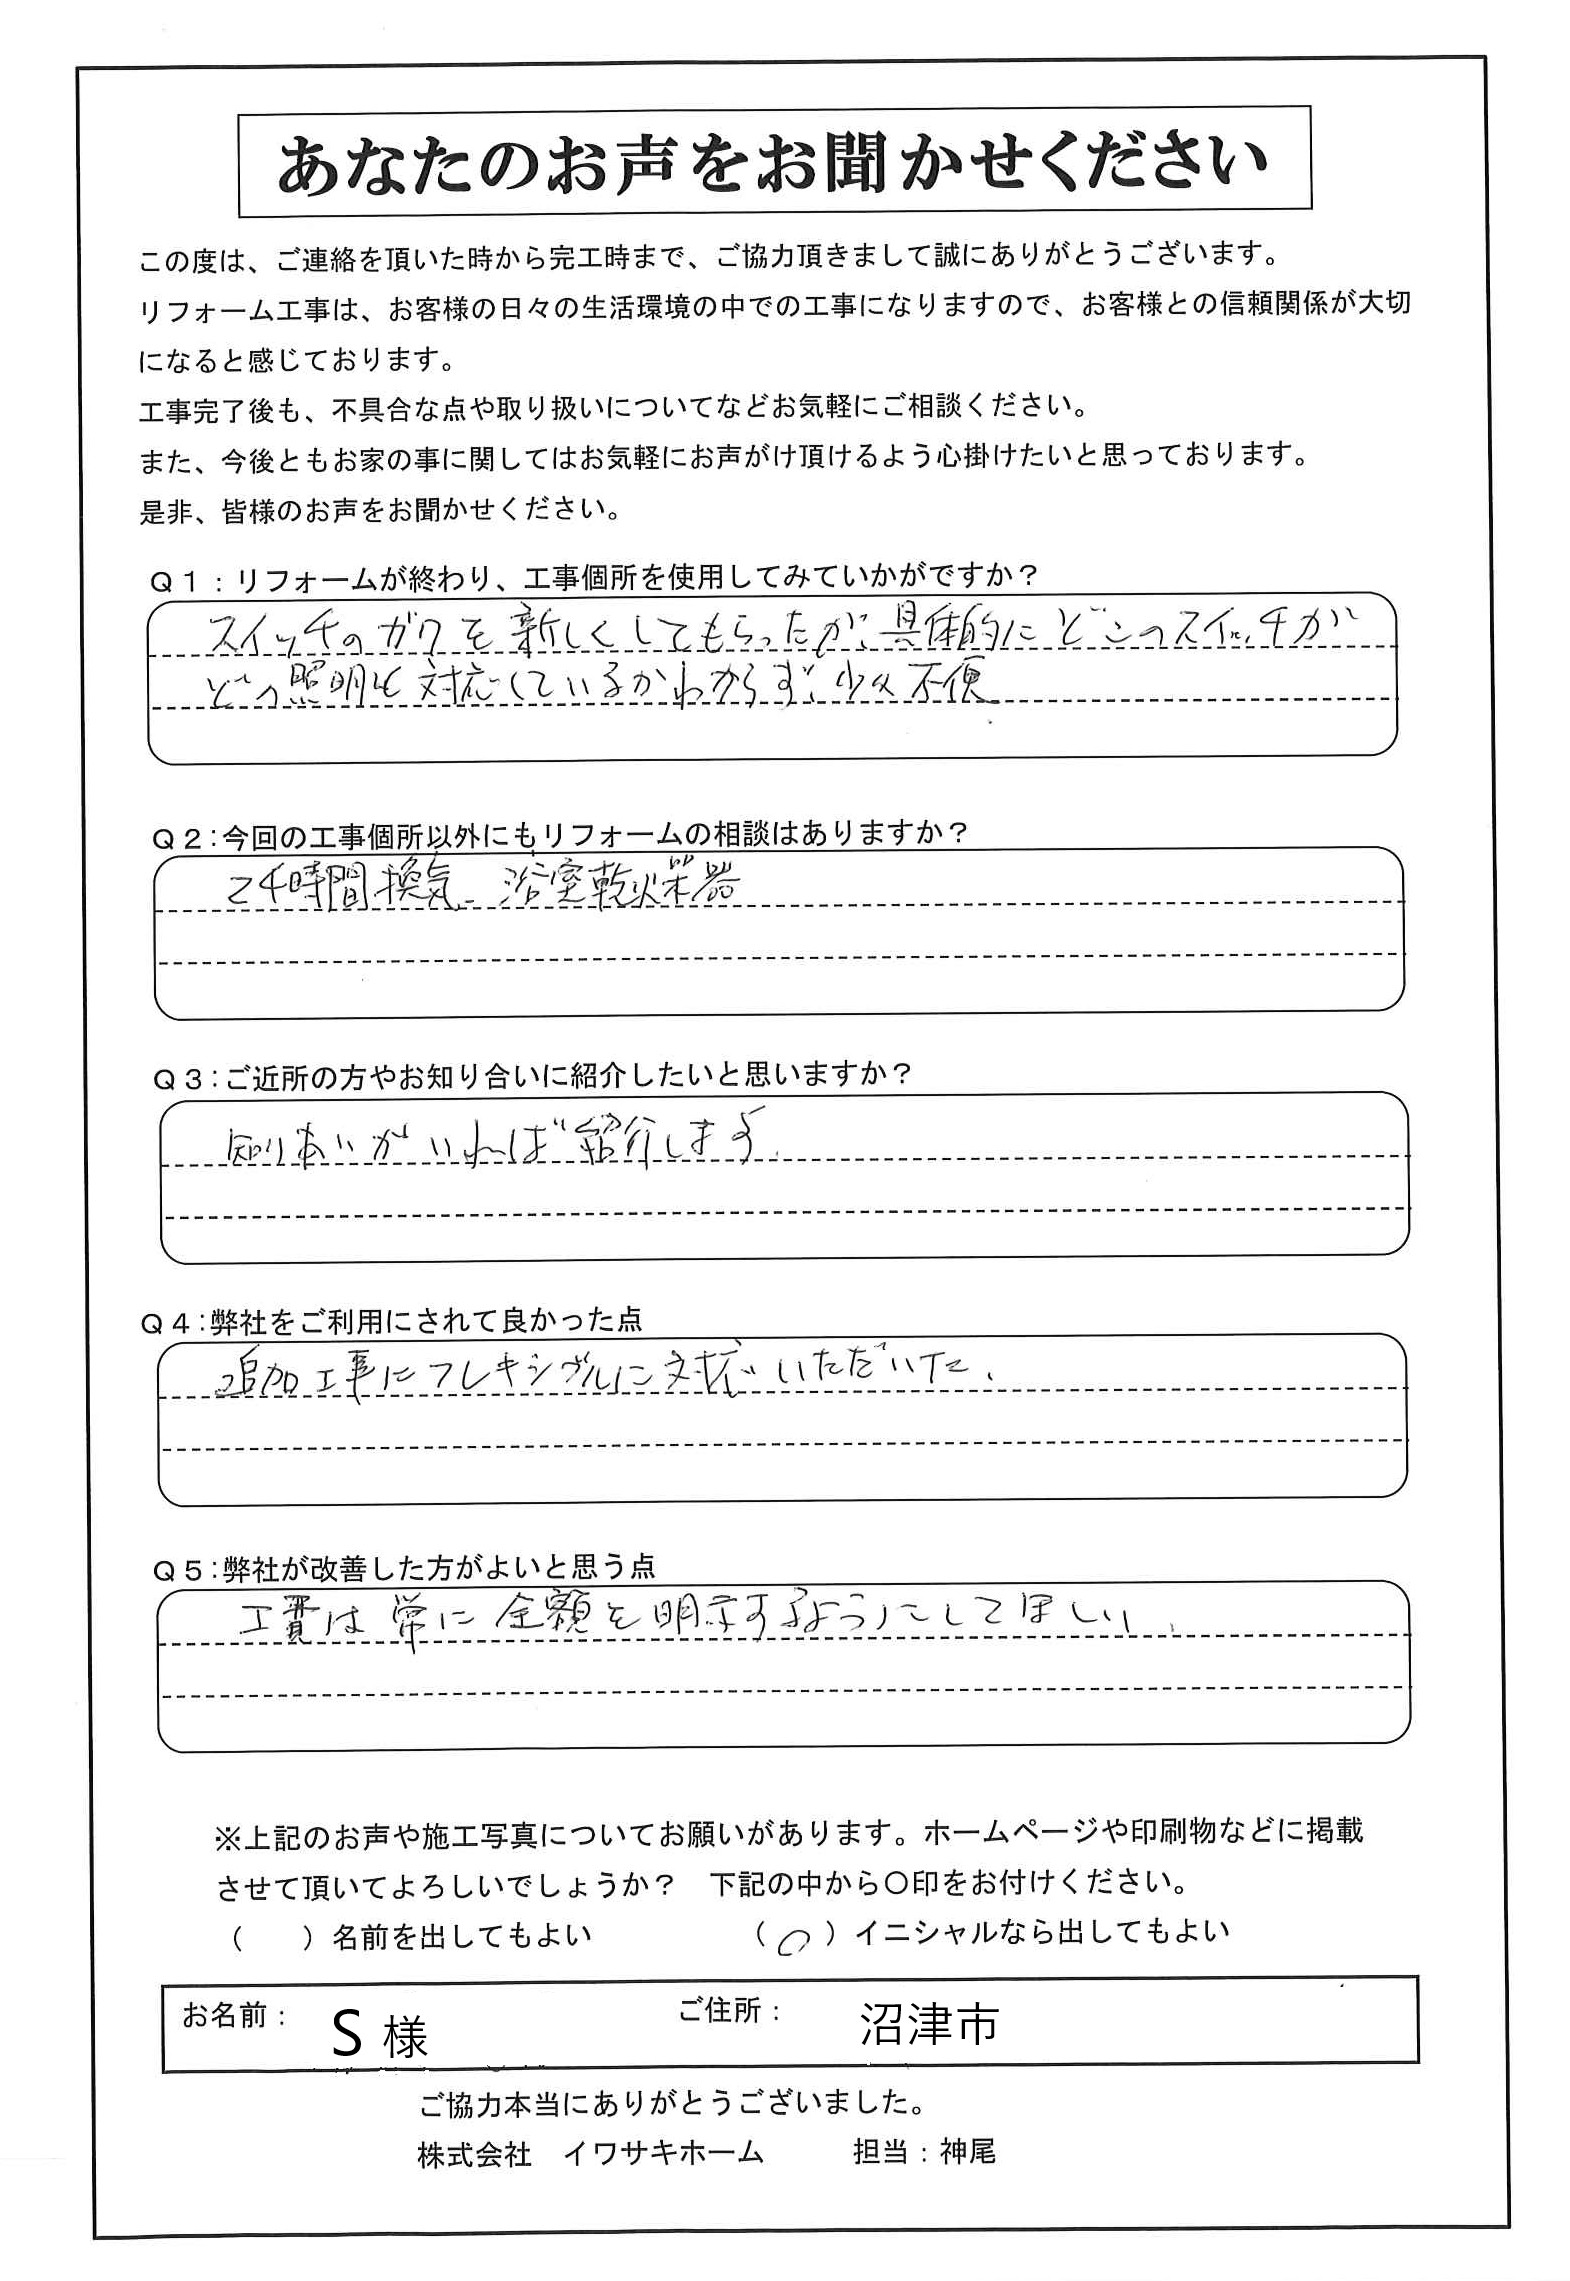 あなたのお声をお聞かせください
この度は、ご連絡を頂いた時から完工時まで、ご協力頂きまして誠にありがとうございます。
リフォーム工事は、お客様の日々の生活環境の中での工事になりますので、お客様との信頼関係が大切
になると感じております。
工事完了後も、不具合な点や取り扱いについてなどお気軽にご相談ください。
また、今後ともお家の事に関してはお気軽にお声がけ頂けるよう心掛けたいと思っております。
是非、皆様のお声をお聞かせください。
Q1：リフォームが終わり、工事個所を使用してみていかがですか？
スイッチのガワを新しくしてもらったが、具体的にどこのスイッチが
どの照明に対応しているかわからず、少々不便
Q2：今回の工事個所以外にもリフォームの相談はありますか？
24時間換気、浴室乾燥器
Q3：ご近所の方やお知り合いに紹介したいと思いますか？
知りあいがいれば紹介します。
Q4：弊社をご利用にされて良かった点
追加工事にフレキシブルに対応いただいた。
Q5：弊社が改善した方がよいと思う点
工費は常に全額を明示するようにしてほしい。
※上記のお声や施工写真についてお願いがあります。ホームページや印刷物などに掲載
させて頂いてよろしいでしょうか？　下記の中から〇印をお付けください。
（　　）名前を出してもよい　（〇）イニシャルなら出してもよい
お名前：　S 様　ご住所：　沼津市
ご協力本当にありがとうございました。
株式会社　イワサキホーム　担当：神尾